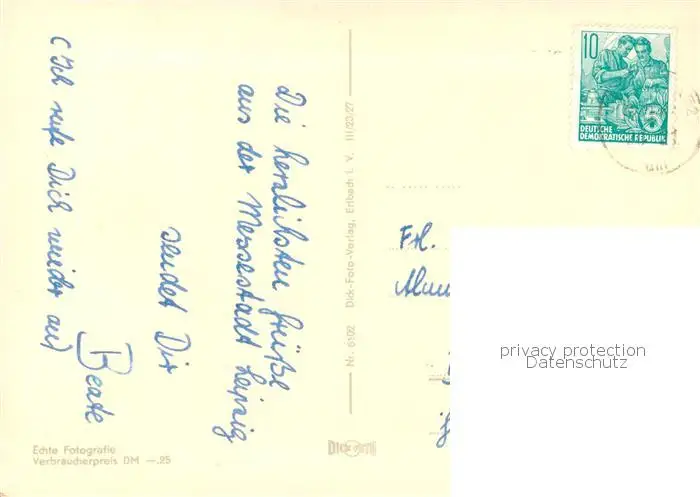 Die herzlichsten Grüße
aus der Messestadt Leipzig
sendet Dir
Beate
(Ich rufe Dich wieder an)
Nr. 6102 Dick-Foto-Verlag, Erlbach i. V. III/23/27
10
DEUTSCHE
DEMOKRATISCHE REPUBLIK
Frl.
privacy protection
Datenschutz
Echte Fotografie
Verbraucherpreis DM —.25
DICK FOTO